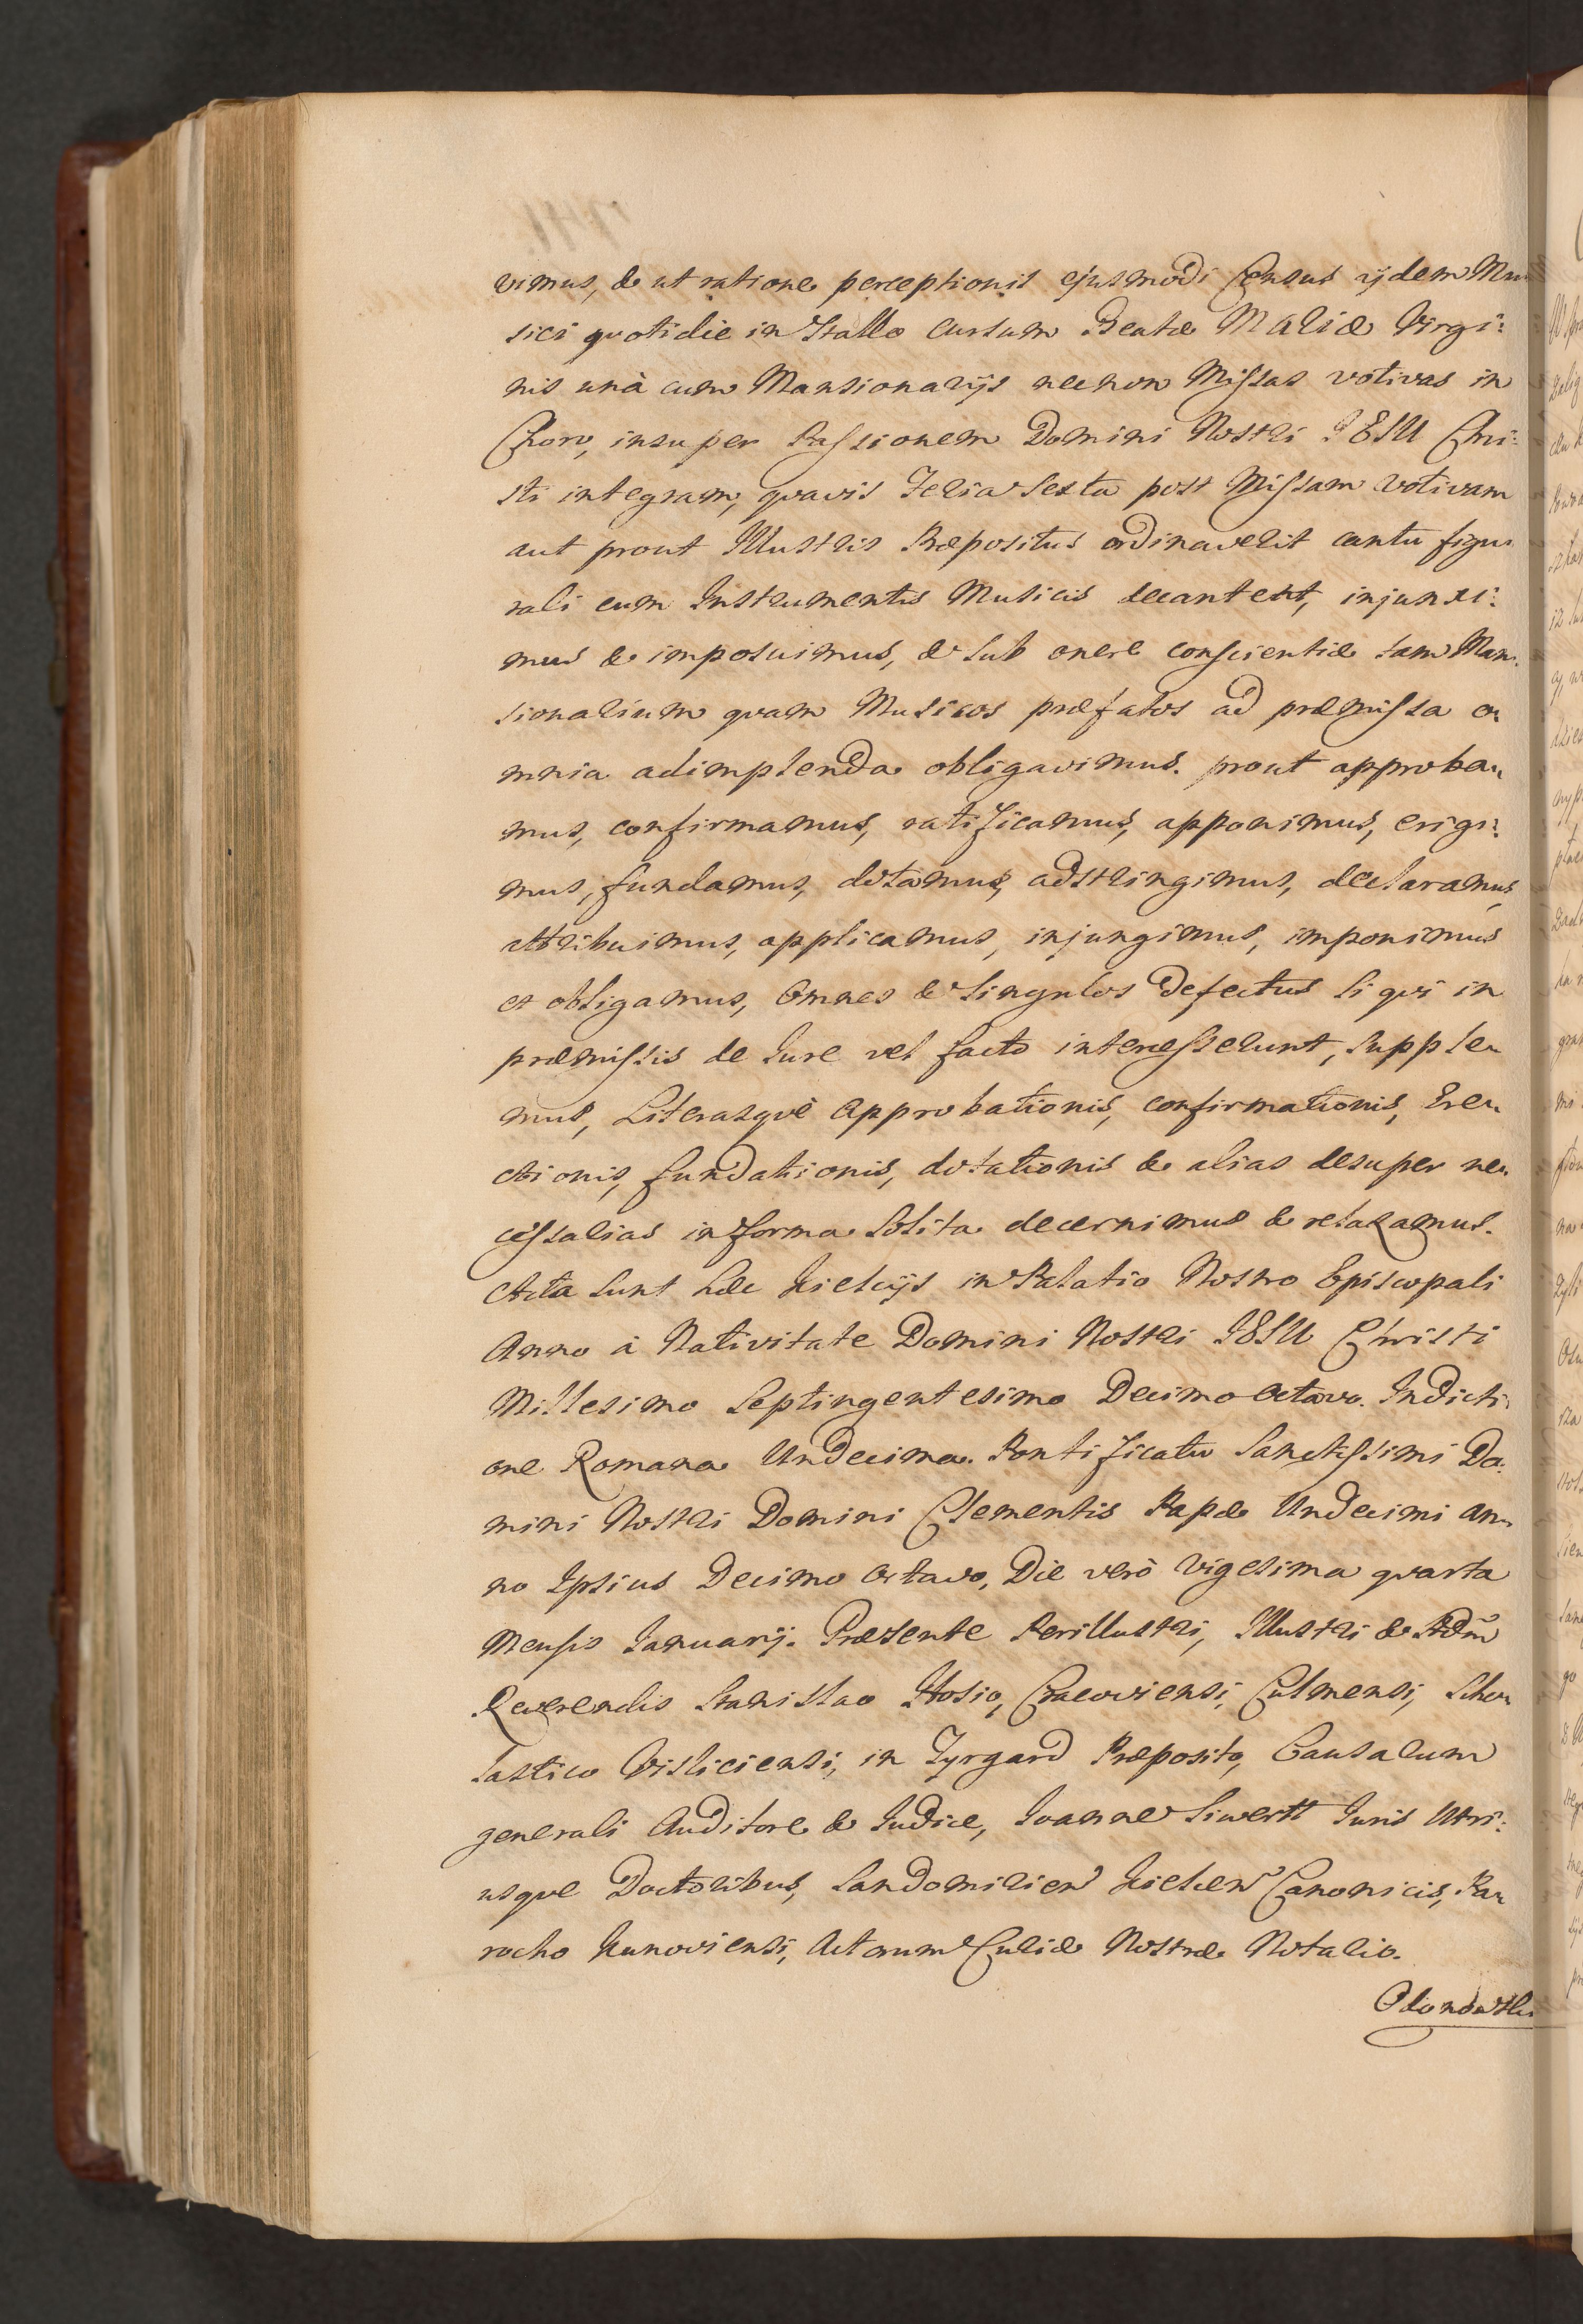 vimus, & ut ratione perceptionis ejusmodi Census ijdem Mu
sici quotidie in Stallo Cursum Beatæ MARIÆ Virgi:
nis unà cum Mansionarijs necnon Missas votivas in
Choro, insuper Passionem Domini Nostri IESU Chri:
sti integram, quavis Feria Sexta post Missam votivam
aut prout Illustris Præpositus ordinaverit cantu figu
rali cum Instrumentis Musicis decantent, injunxi:
mus & imposuimus, & sub onere conscientiæ tam Man:
sionarium quam Musicos præfatos ad præmissa o
mnia adimplenda obligavimus. prout approba
mus, confirmamus, ratificamus, apponimus, erigi:
mus, fundamus, dotamus, adstringimus, declaramus,
attribuimus, applicamus, injungimus, imponimus
et obligamus, Omnes & singulos Defectus si qui in
præmissis de Iure vel facto intercesserunt, supple
mus, Literasquè Approbationis, confirmationis, Ere
ctionis, fundationis, dotationis & alias desuper ne
cessarias in forma solita decernimus & relaxamus.
Acta sunt hæc Kielcijs in Palatio Nostro Episcopali
Anno à Nativitate Domini Nostri IESU Christi
Millesimo Septingentesimo Decimo Octavo. Indicti
one Romana Undecima. Pontificatu Sanctissimi Do:
mini Nostri Domini Clementis Papæ Undecimi an
no Ipsius Decimo Octavo, Die verò Vigesima quarta
Mensis Ianuarij. Præsente Perillustri, Illustri & Adm̃
Reverendis Stanislao Hosio, Cracoviensi, Culmensi, Scho
lastico Visliciensi, in Tyrgard Præposito, Causarum
generali Auditore & Iudice, Ioanne Siwertt Iuris Utri:
usque Doctoribus, Sandomirien Kielcen Canonicis, Pa
rocho Kunoviensi, Actorum Curiæ Nostræ Notario.